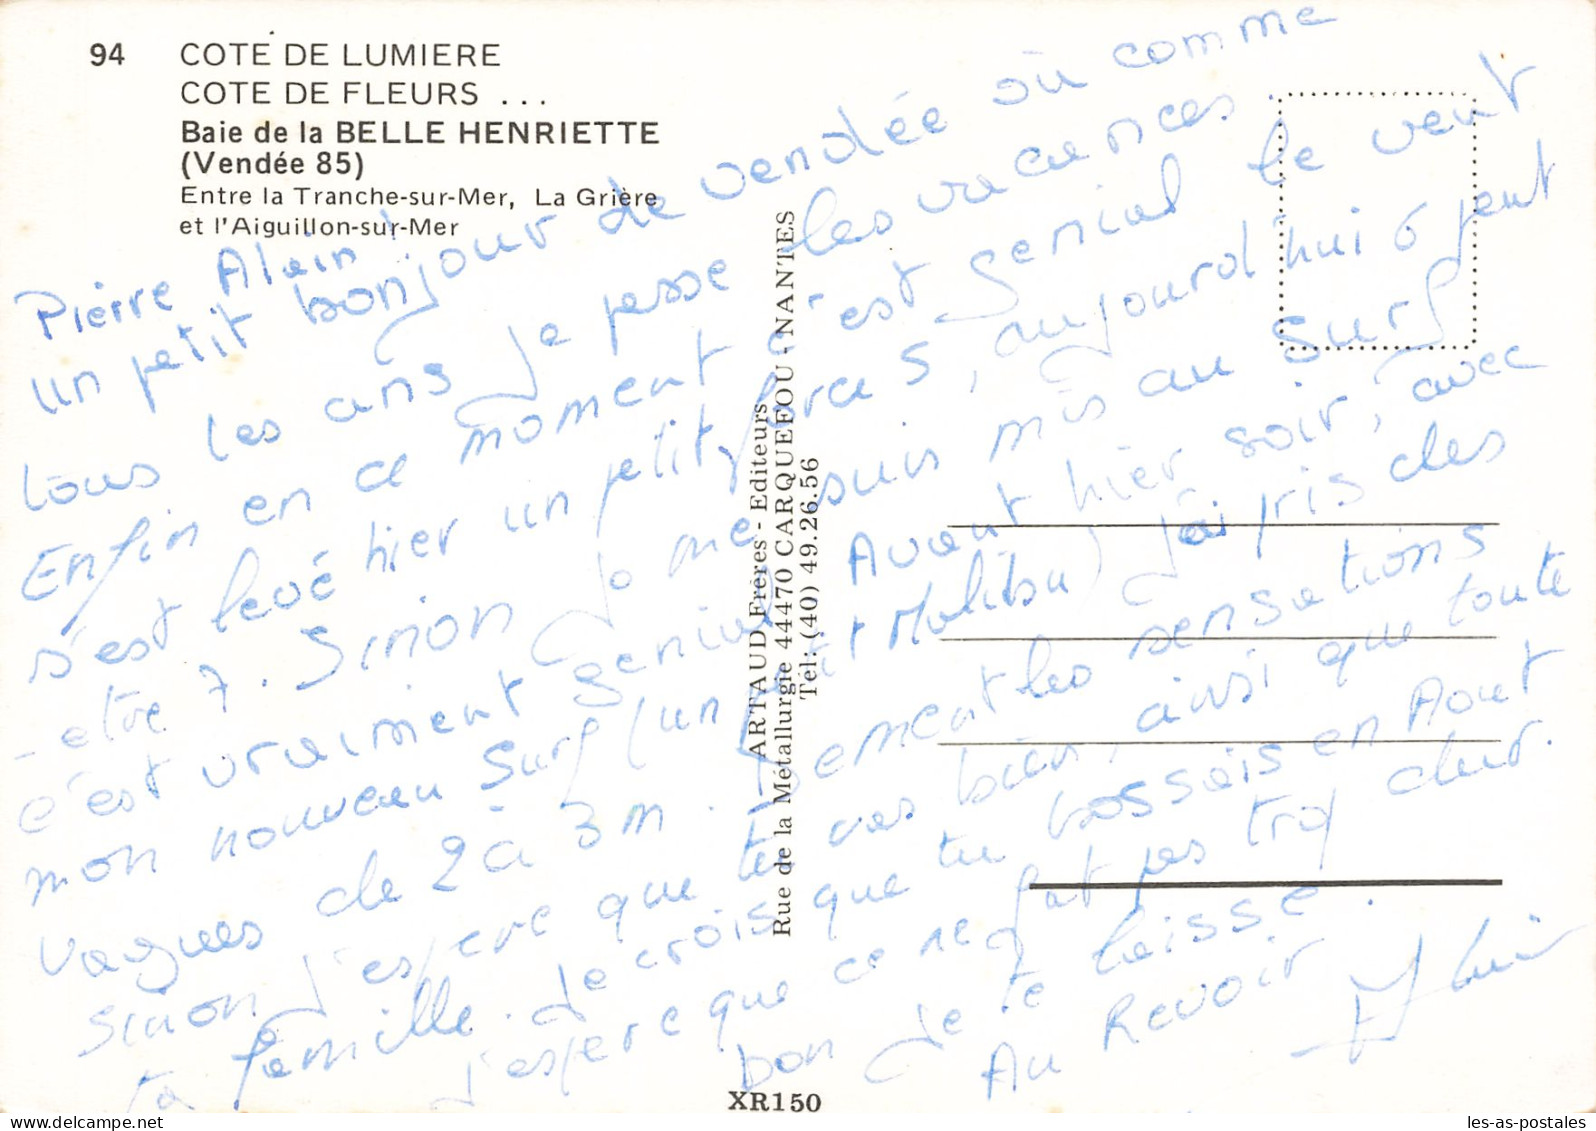 94 COTE DE LUMIERE
COTE DE FLEURS ...
Baie de la BELLE HENRIETTE
(Vendée 85)
Entre la Tranche-sur-Mer, La Grière
et l'Aiguillon-sur-Mer
Pierre Alain !
un petit bonjour de vendée où comme
tous les ans je passe les vacances
Enfin en ce moment c'est genial le vent
s'est levé hier un petit force 5, aujourd'hui 6 peut
-etre 7. Sinon je me suis mis au surf
c'est vraiment genial Avant hier soir, avec
mon nouveau surf (un petit Malibu) j'ai pris des
vagues de 2 à 3 m. les sensations
Sinon j'espere que tu vas bien, ainsi que toute
ta famille. Je crois que tu bossais en Aout
j'espere que ce ne fut pas trop dur.
bon je te laisse.
Au Revoir
Alain
ARTAUD Frères - Editeurs
Rue de la Métallurgie 44470 CARQUEFOU - NANTES
Tél: (40) 49.26.56
XR150
les-as-postales